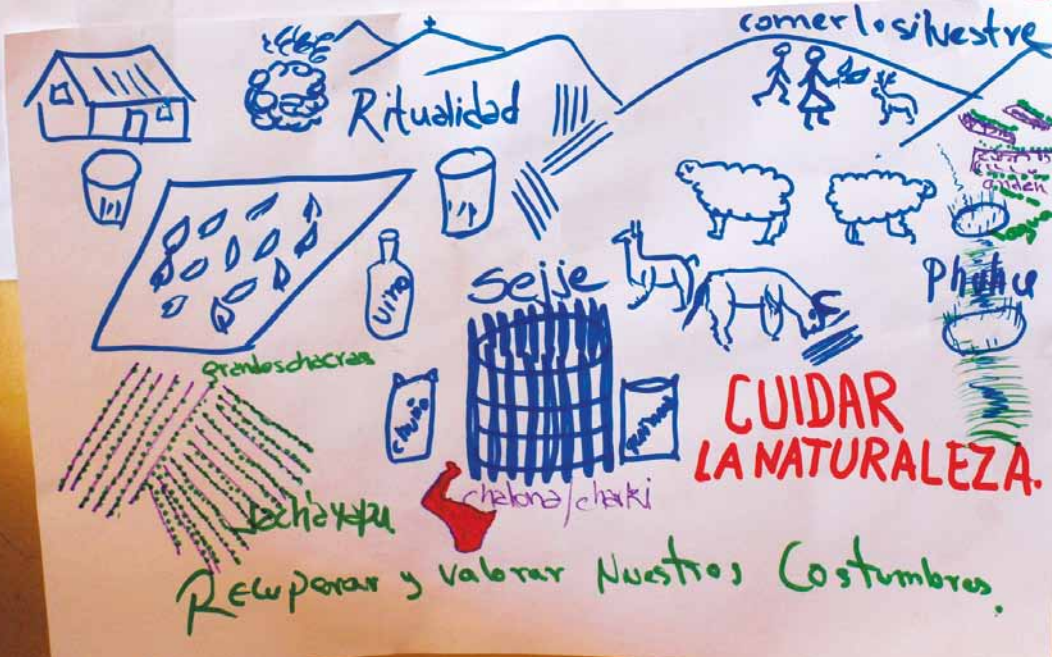 comer lo silvestre
Ritualidad
anden
vino
Sejje
grandes chacras
chuño
CUIDAR
LA NATURALEZA.
chalona/charki
Recuperar y valorar Nuestros Costumbres.